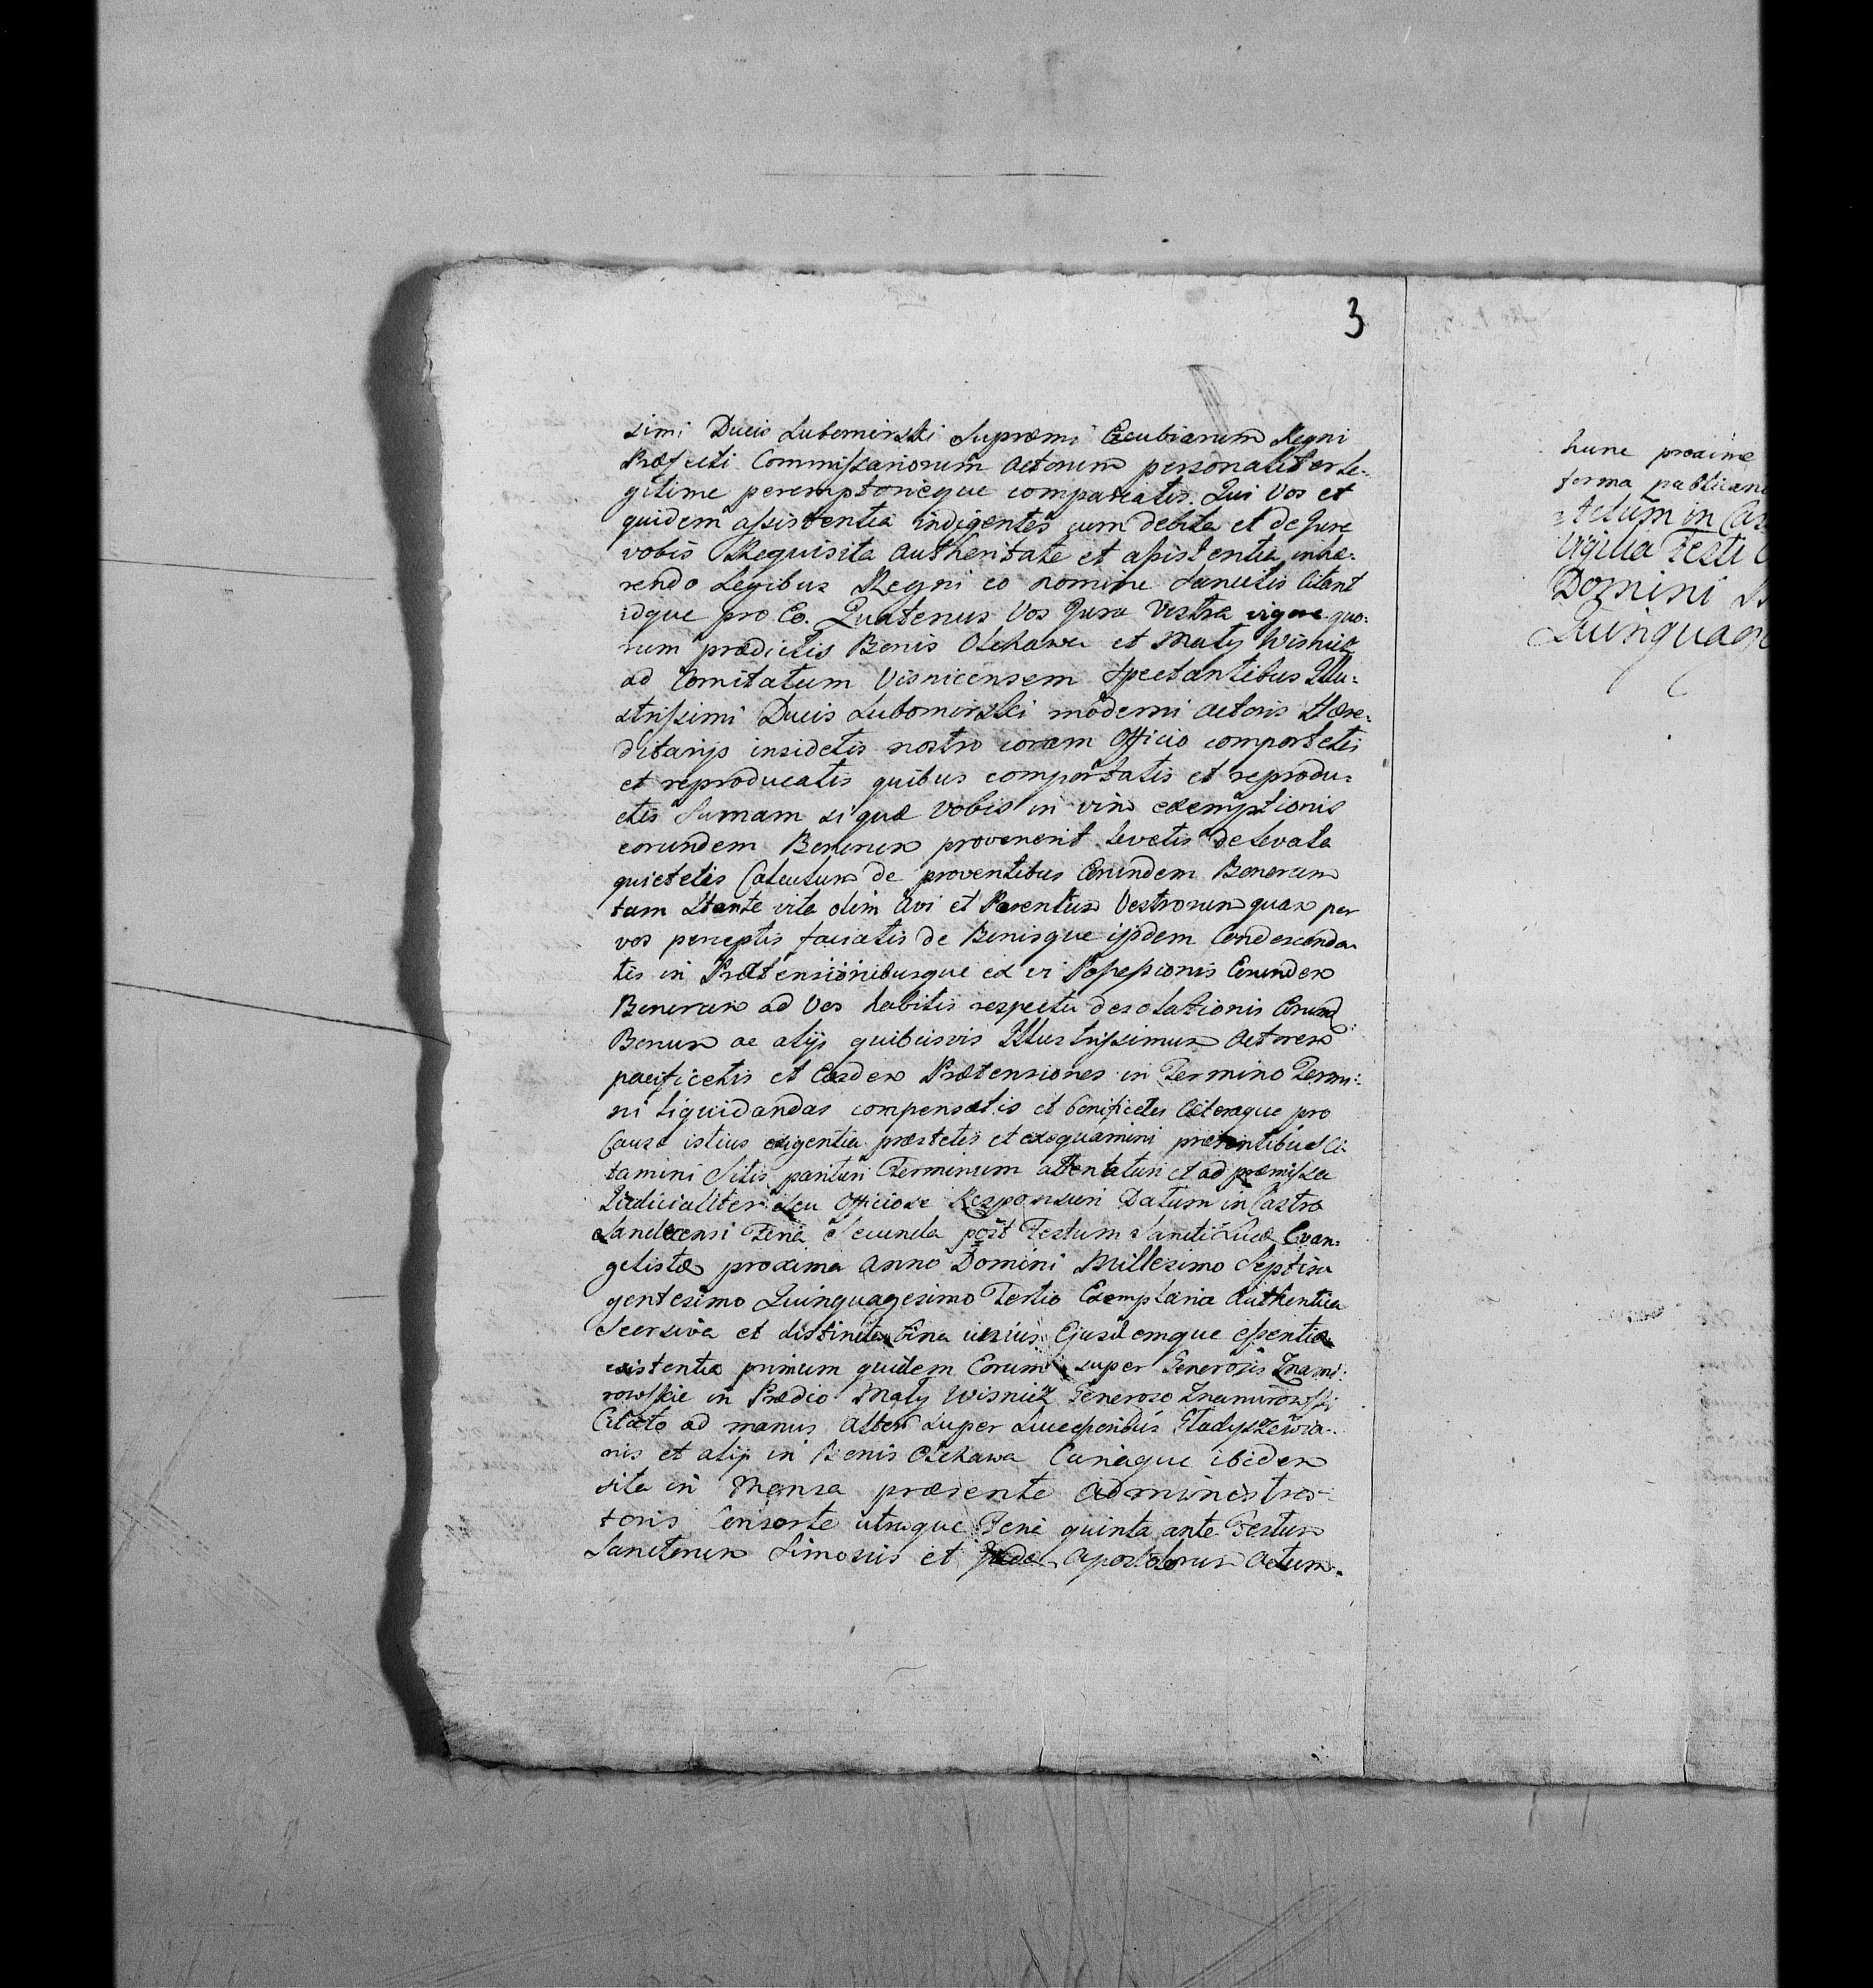 3
simi Ducis Lubomirski Supremi Excubiarum Regni
Præfecti Commissariorum Actorum personaliter le-
gitime peremptorieque compareatis. Qui Vos et
quidem assistentia indigentes cum debita et de Jure
vobis Requisita Authoritate et assistentia inhæ-
rendo Legibus Regni eo nomine Sancitis Citant
idque pro Eo. Quatenus Vos Jura Vestra vigore quo-
rum prædictis Bonis Olchawa et Mały Wisnicz
ad Comitatum Visnicensem Spectantibus Illu-
strissimi Ducis Lubomirski moderni Actoris Hære-
ditarijs insidetis nostro coram Officio comportetis
et reproducatis quibus comportatis et reprodu-
ctis Sumam si quæ Vobis in vim exemptionis
eorundem Bonorum provenerit levetis de levata
quietetis Calculum de proventibus Eorundem Bonorum
tam Stante vita olim Avi et Parentum Vestrorum quam per
vos perceptis faciatis de Bonisque ijsdem Condescenda-
tis in Prætensionibusque ex vi Possessionis Eorundem
Bonorum ad Vos habitis respectu desolationis Eorund
Bonorum ac alijs quibusvis Illustrissimum Actorem
pacificetis et Easdem Prætensiones in Termino Termi-
ni liquidandas compensetis et bonificetis Cæteraque pro
Causæ istius exigentia præstetis et exequamini præsentibus Ci-
tamini Sitis parituri Terminum attentaturi et ad præmissa
Judicialiter Seu Officiose Responsuri Datum in Castro
Sandecensi Feria Secunda post Festum Sancti Lucæ Evan-
gelistæ proxima Anno Domini Millesimo Septin
gentesimo Quinquagesimo Tertio Exemplaria Authentica
Seorsiva et distincta bina unius Ejusdemque essentiæ
existentia primum quidem Eorum super Generosis Znami-
rowskie in Prædio Mały Wisnicz Generoso Znamirowski
Citato ad manus Alterum super Successoribus Gładyszewia-
nis et alijs in Bonis Olchawa Curiaque ibidem
sita in Mensa præsente Administra-
toris Consorte utraque Feria quinta ante Festum
Sanctorum Simonis et Judæ Apostolorum Actum
hunc proxime
forma publican
Actum in Cas
Vigilia Festi
Domini
Quinquage